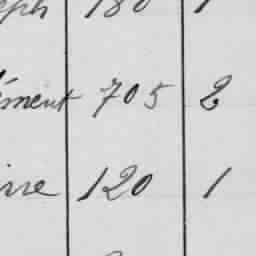 eph 180 1
ément 705 2
rre 120 1